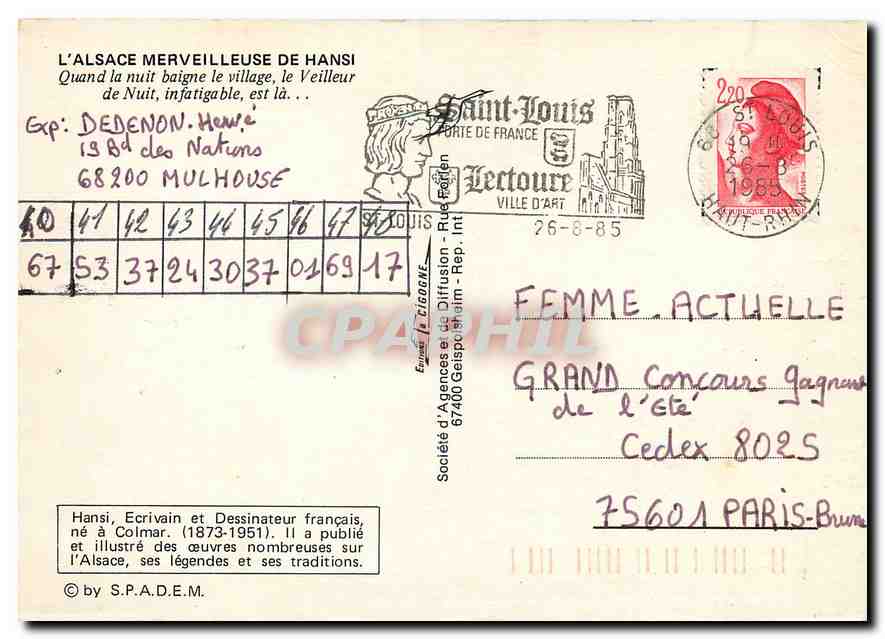 L'ALSACE MERVEILLEUSE DE HANSI
Quand la nuit baigne le village, le Veilleur
de Nuit, infatigable, est là...
Exp: DEDENON. Hervé
19 Bd des Nations
68200 MULHOUSE
40 41 42 43 44 45 46 47 48
67 53 37 24 30 37 01 69 17
Saint-Louis
PORTE DE FRANCE
Lectoure
VILLE D'ART
ST LOUIS
26-8-85
2,20
68 ST LOUIS
19 H
26-8
1985
HAUT-RHIN
REPUBLIQUE FRANÇAISE
Editions la CIGOGNE
Société d'Agences et de Diffusion - Rue Forlen
67400 Geispolsheim - Rep. Int.
CPAPHIL
FEMME. ACTUELLE
GRAND Concours gagnant
de l'Eté
Cedex 8025
75601 PARIS-Brune
Hansi, Ecrivain et Dessinateur français,
né à Colmar. (1873-1951). Il a publié
et illustré des œuvres nombreuses sur
l'Alsace, ses légendes et ses traditions.
© by S.P.A.D.E.M.